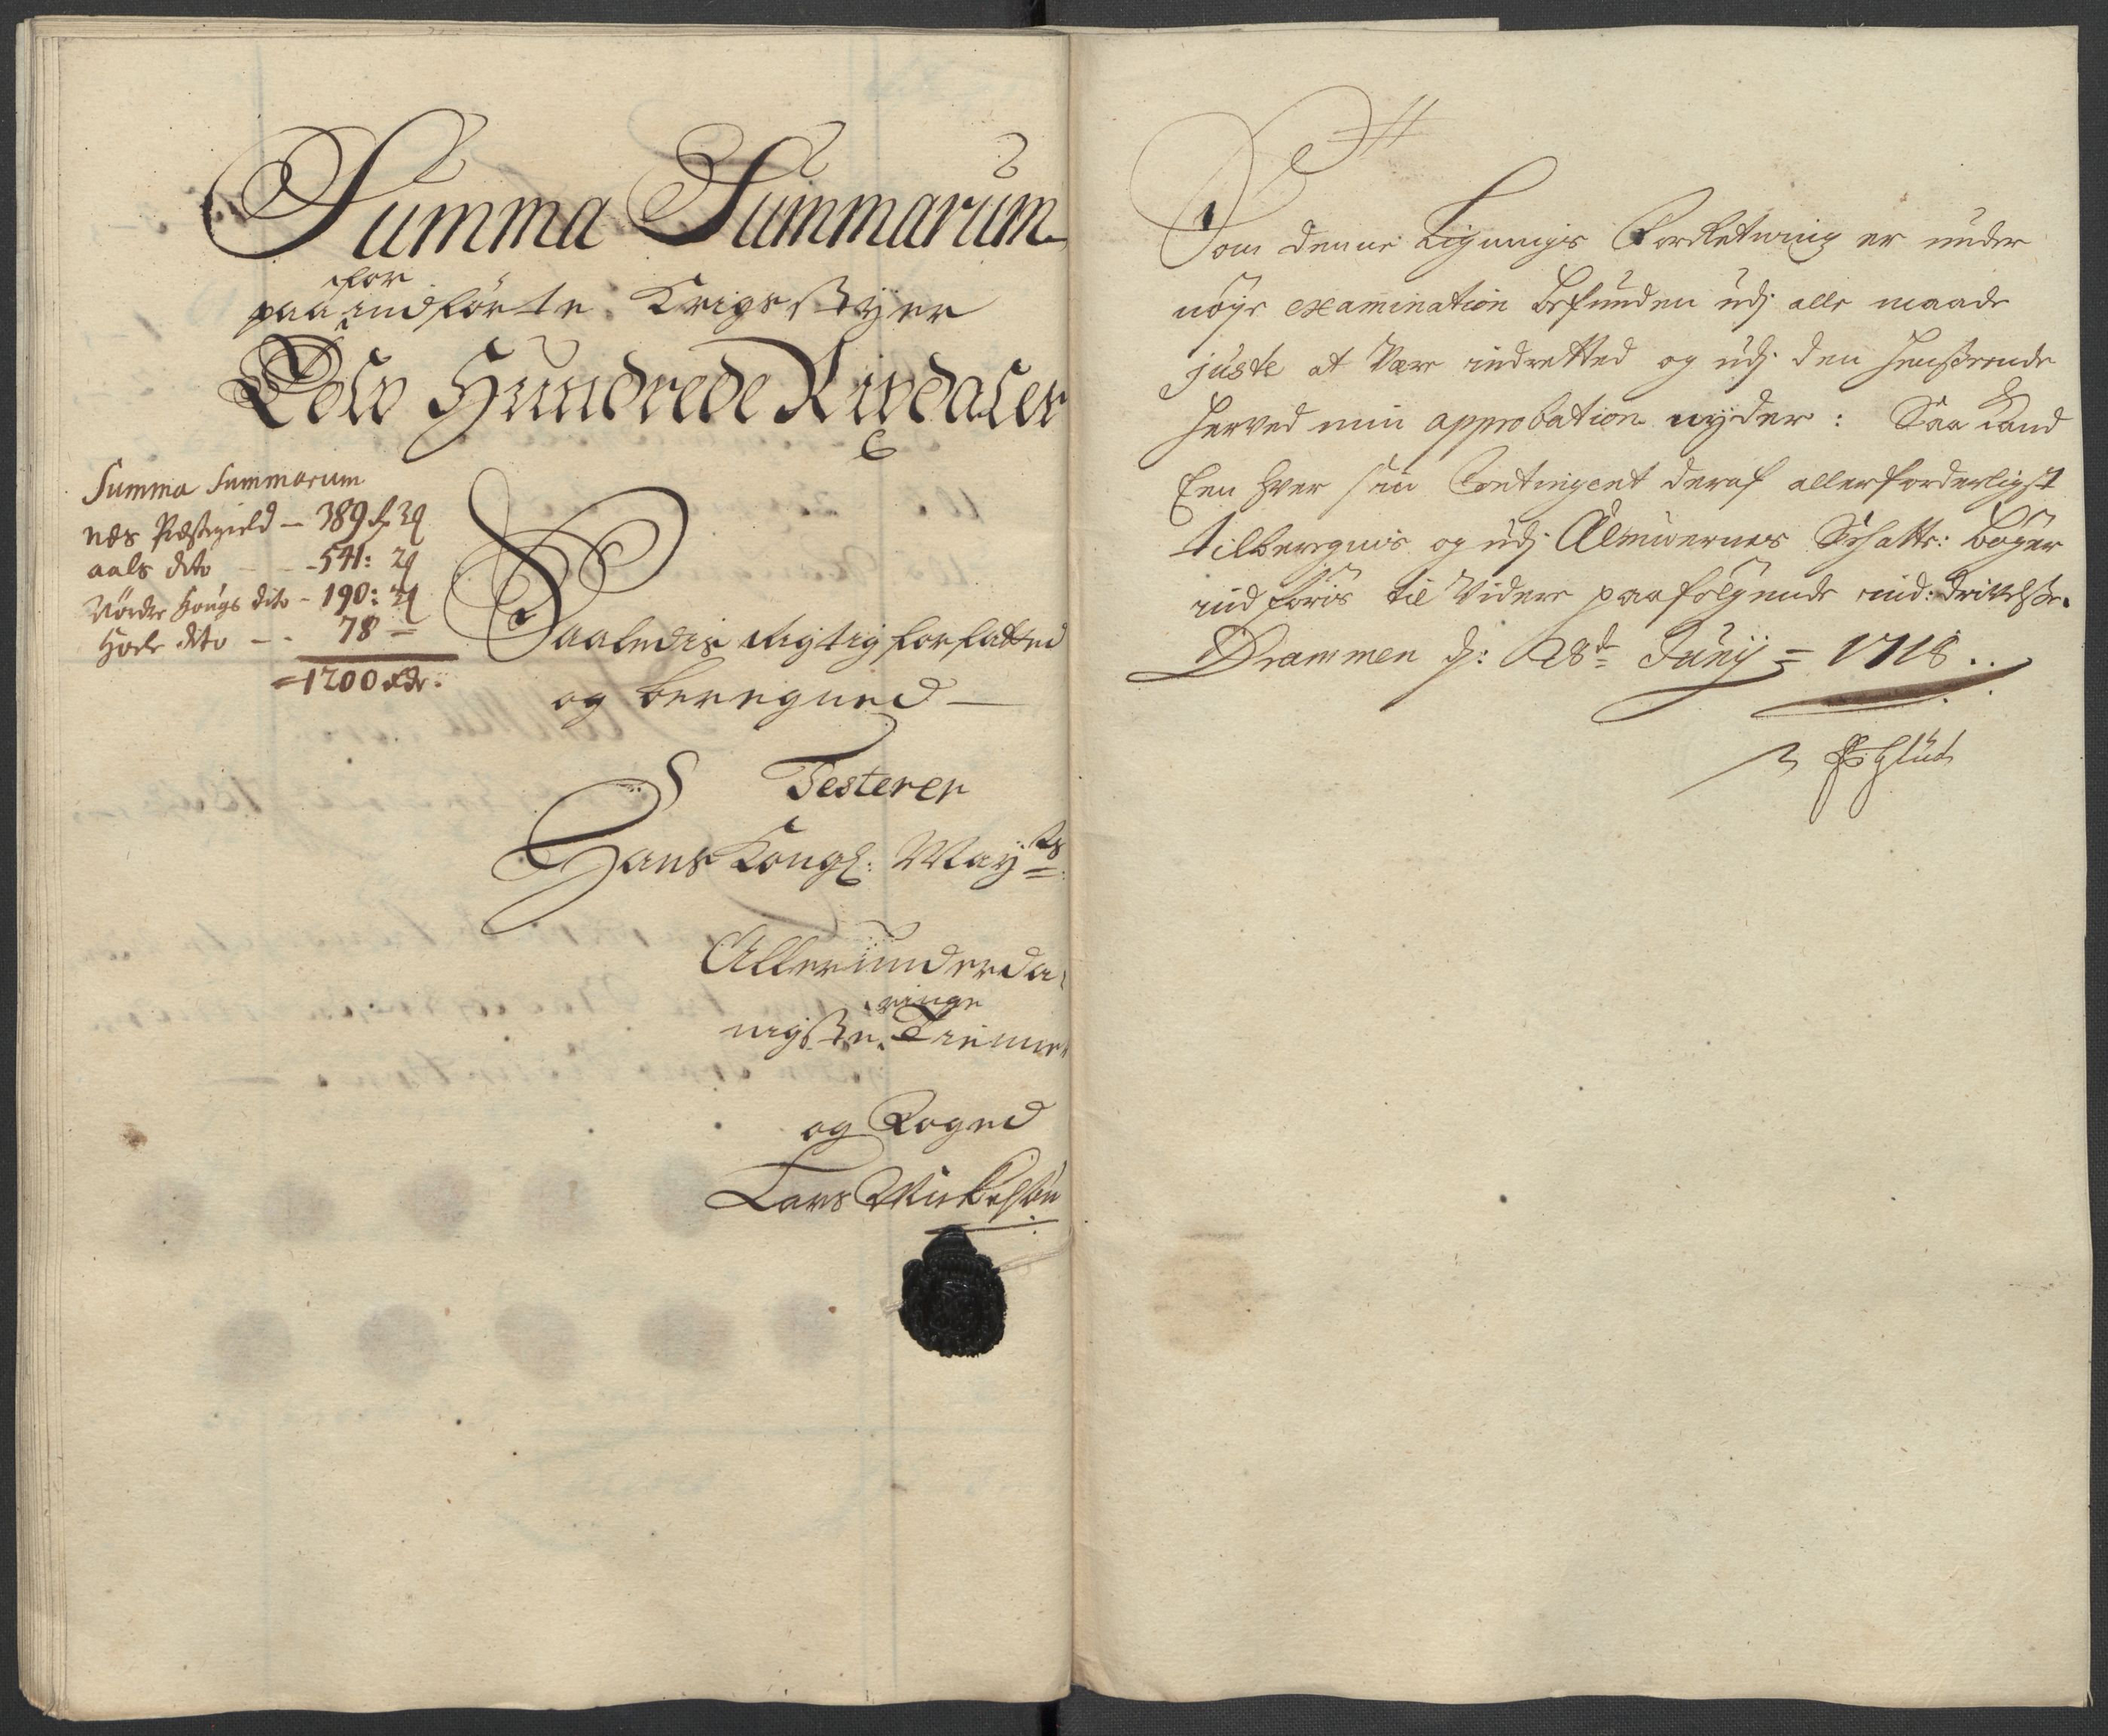 Summa Summarum
for
paa andførte Krigs styer
Tolv Hundrede Rixdaler
Summa Summarum
Nes Præstegield — 389 d 2q
aals dito — 541: 2q
Nørdre Hougs dito - 190: 2q
Hoele dito — 78 =
= 1200 Rdr:
Saaledis rigtig forfatted
og beregned —
Testerer
Hans Kongl: Mayts
Allerunderda
ringe
nigste Tienner
og Foged
Lars Mickelsøn
Som denne Lignings Forretning er under
nøye examination befunden udj alle maade
juste at være indretted og udj den henseende
herved min approbation nyder: Saa kand
Een hver sin Contingent deraf allerforderligst
tilberegnis og udj Almuernes Schatte: bøger
ind føris til Videre paafølgende ind: drivelse.
Drammen d: 28de Junij = 1718..